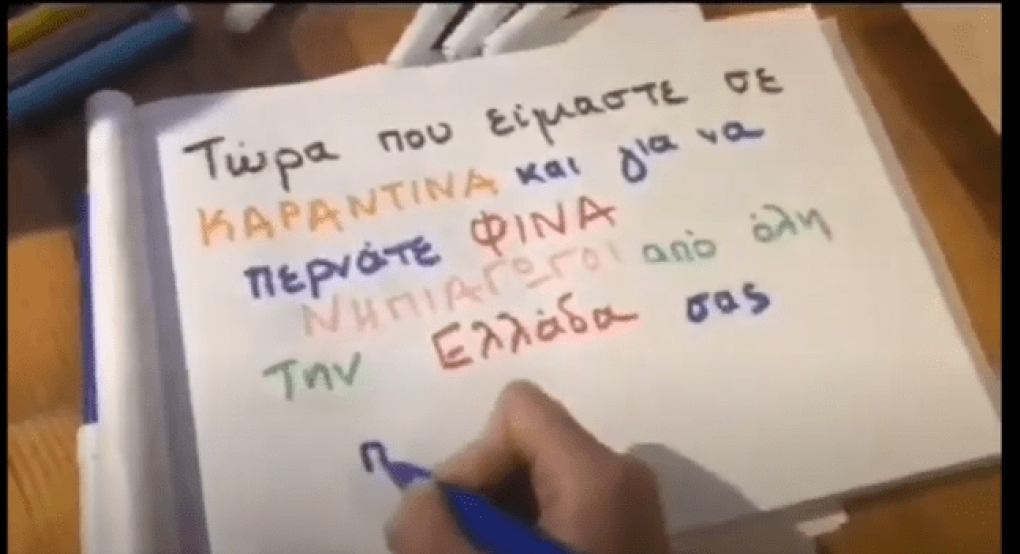 Τώρα που είμαστε σε
ΚΑΡΑΝΤΙΝΑ και για να
περνάτε ΦΙΝΑ
ΝΗΠΙΑΓΩΓΟΙ από όλη
την Ελλάδα σας
π